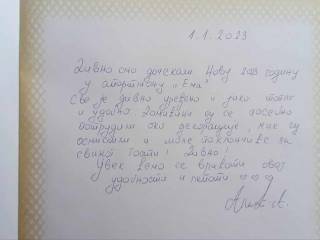 1.1.2023
Дивно смо дочекали Нову 2023 годину
у апартману „Ема"
Све је дивно уређено и јако топло
и удобно. Домаћини су се посебно
потрудили око декорације, чак су
осмислили и мале поклончиће за
своје госте! Дивно!
Увек ћемо се враћати овој
удобности и лепоти